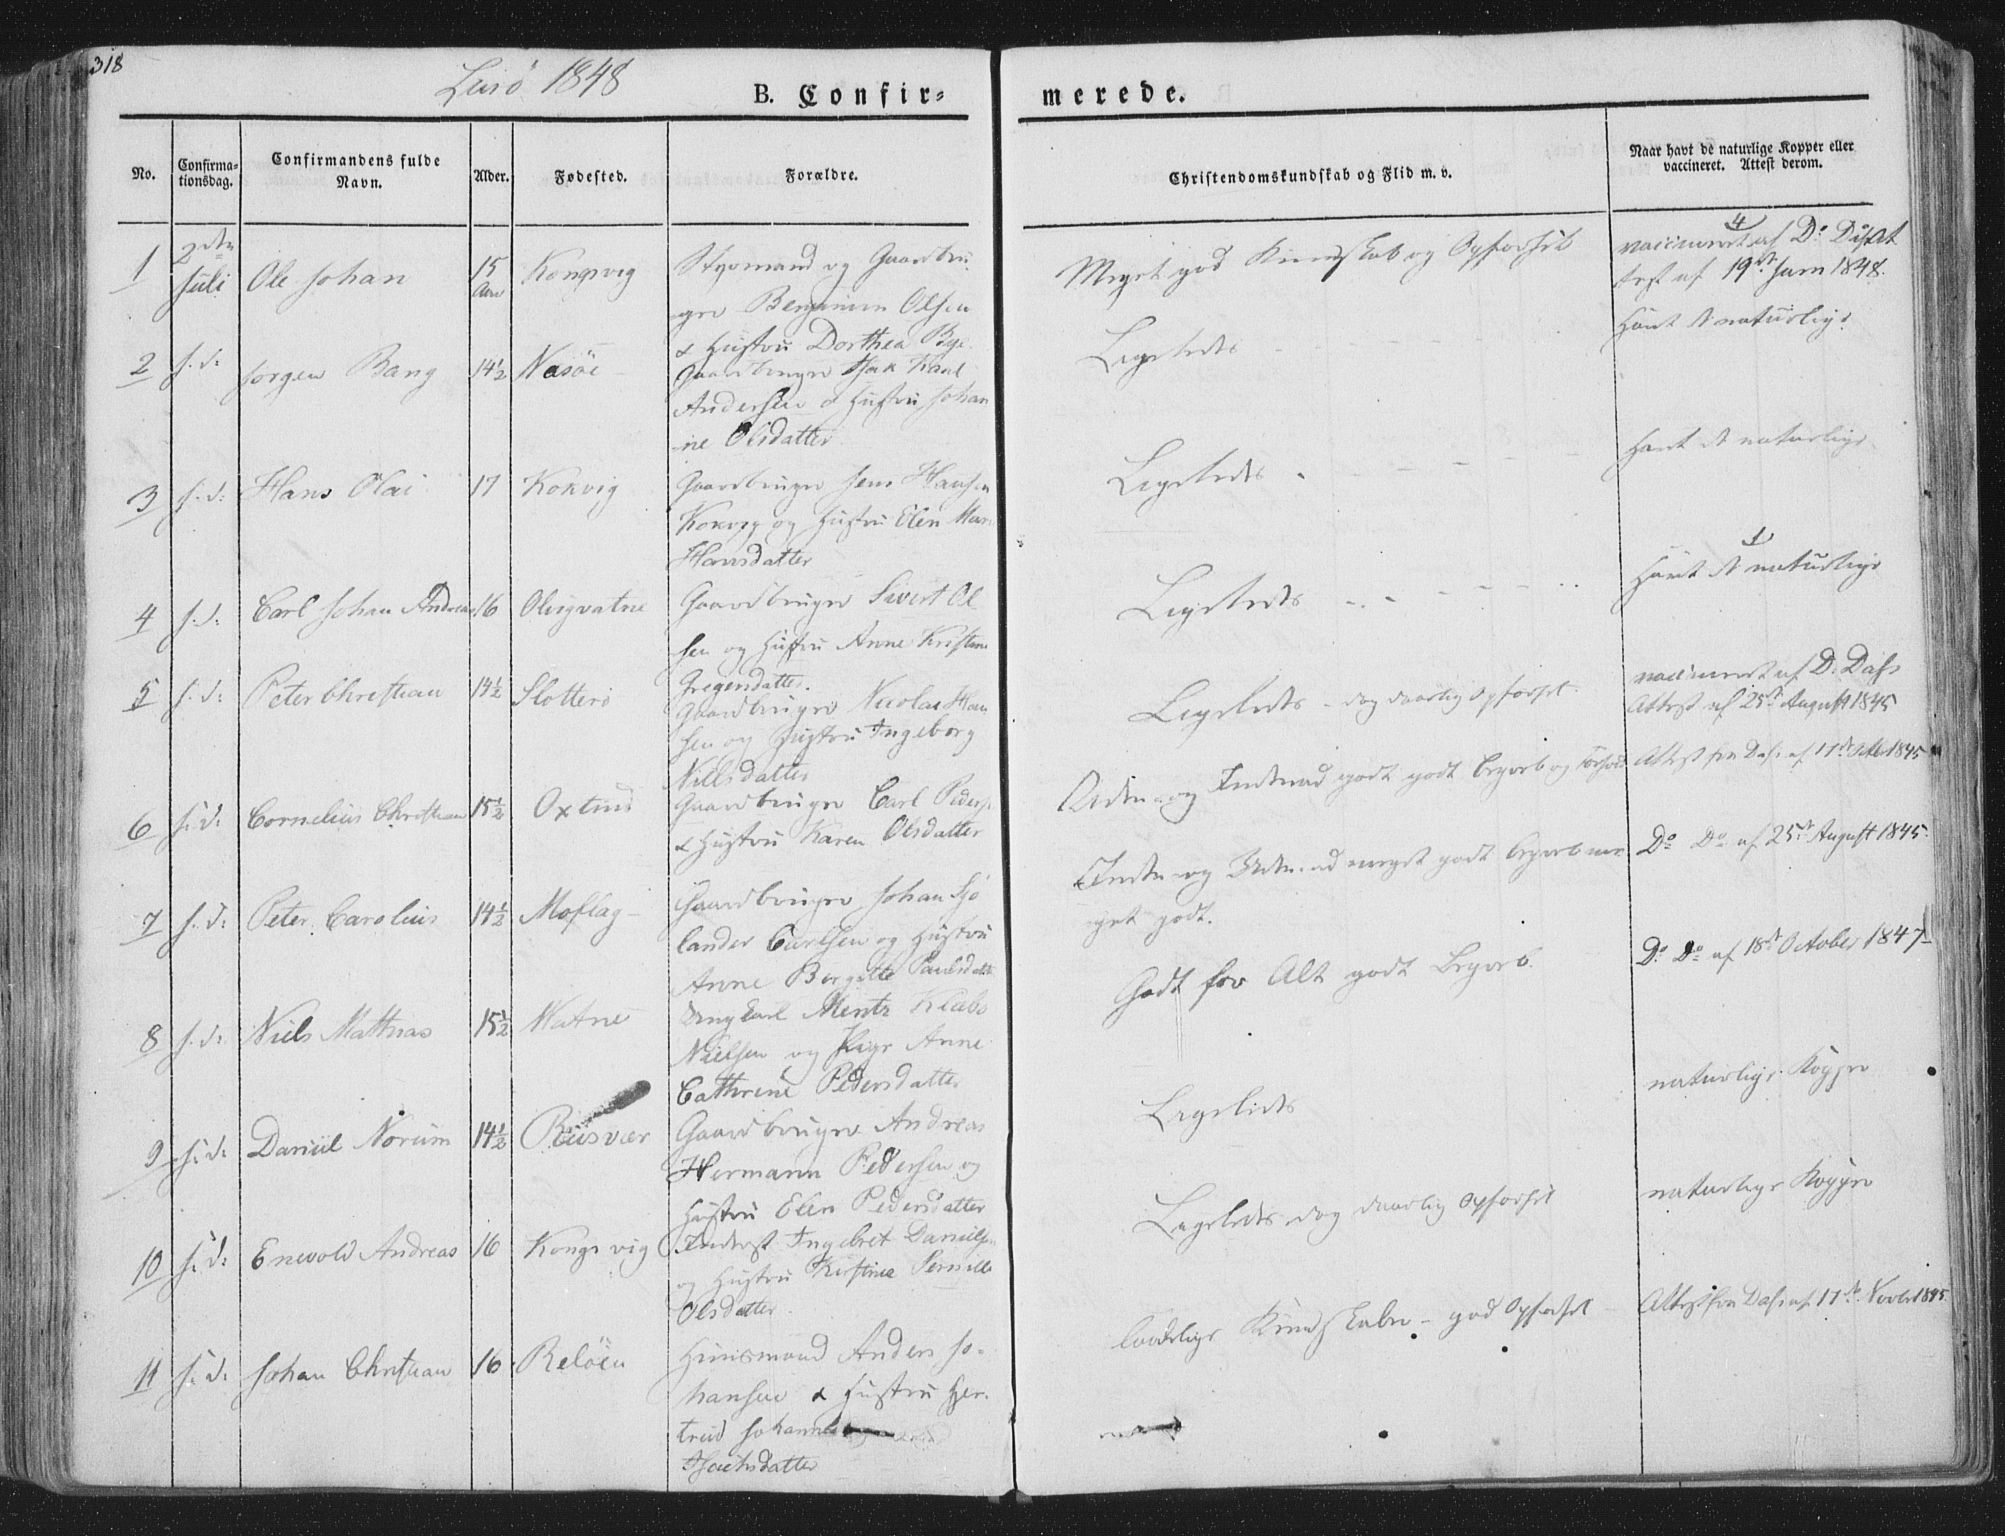 318
1848
B. Confir=
merede.
No.
Confirma=
tionsdag.
Confirmandens fulde
Navn.
Alder.
Fødested.
Forældre.
Christendomskundskab og Flid m. v.
Naar havt de naturlige Kopper eller
vaccineret. Attest derom.
1
2den
Juli
Ole Johan
15
Aar
Kongsvig
Styrmand og Gaardbru-
ger Benjamin Olsen
& Hustru Dorthea
Meget god Kundskab og Opførsel
vaccineret af
af 19de Juni 1848.
2
s. d:
Jorgen Bang
14½
Gaardbruger Isak
Andersen & Hustru Johan
ne Olsdatter
Ligeledes
havt d naturlige
3
s. d:
Hans Olai
17
Kokvig
Gaardbruger Jens Hansen
Kokvig og Hustru Elen
Hansdatter
Ligeledes
havt d naturlige
4
s. d:
Carl Johan Andreas
16
Olsgvatne
Gaardbruger Sivert Ol
sen og Hustru Anne
Gregersdatter.
Ligeledes
havt d naturlige
5
s. d:
Peter Christian
14½
Slotterø
Gaardbruger Nicolai Han
sen og Hustru Ingeborg
Nielsdatter
Ligeledes - dog daarlig Opførsel.
vaccineret af D. Dass
Attest af 25de August 1845
6
s. d:
Cornelius Christian
15½
Oxtind
Gaardbruger Carl Peders
& Hustru Karen Olsdatter
Uden- og Indenad godt godt Begreb og Forhold
Attest fra Dass af 17de 1845
7
s. d:
Peter Carolius
14½
Moflag
Gaardbruger Johan Sjø
lander Carlsen og Hustru
Anne Bergitte Paulsdatter
Inden- og Uden-ad meget godt Begreb me-
get godt.
Do Do af 25de August 1845.
8
s. d:
Niels Mathias
15½
Vatne
Ungkarl Mentz
Nielsen og Pige Anne
Cathrine Pedersdatter
Godt for Alt godt Begreb.
Do Do af 18de October 1847
9
s. d:
Daniel Norum
14½
Riisvær
Gaardbruger Andreas
Hermann Pedersen og
Hustru Elen Pedersdatter
Ligeledes
naturlige Kopper
10
s. d:
Enevold Andreas
16
Kongsvig
Inderst Ingebret Daniels
og Hustru Kirstine Pernille
Olsdatter.
Ligeledes dog daarlig Opførsel
naturlige Kopper
11
s. d:
Johan Christian
16
Reløen
Huusmand Anders Jo-
hansen & Hustru
Isachsdatter
Kundskaber - god Opførsel
Attest fra Dass af 17de Novbr 1845